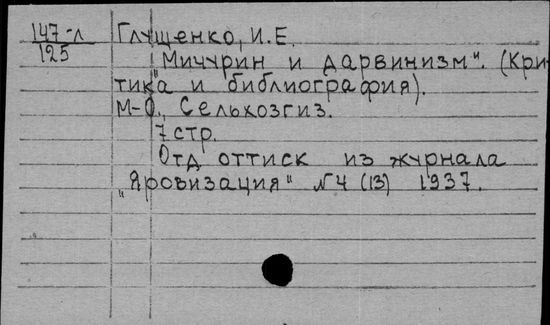 147-л
125
Глущенко, И.Е.
„Мичурин и дарвинизм". (Кри-
тика и библиография).
М-О., Сельхозгиз.
7 стр.
Отд оттиск из журнала
„Яровизация" №4 (13) 1937.